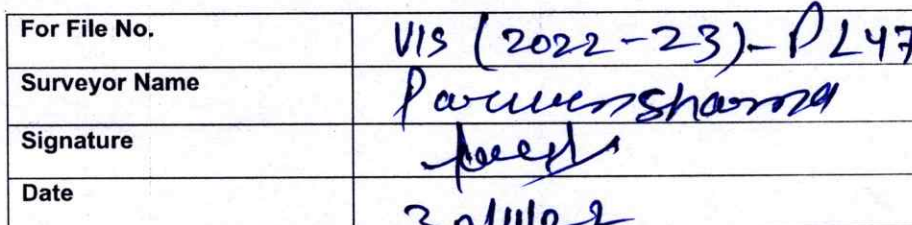 For File No. VIS (2022-23)-PL47
Surveyor Name Parveen Sharma
Signature
Date